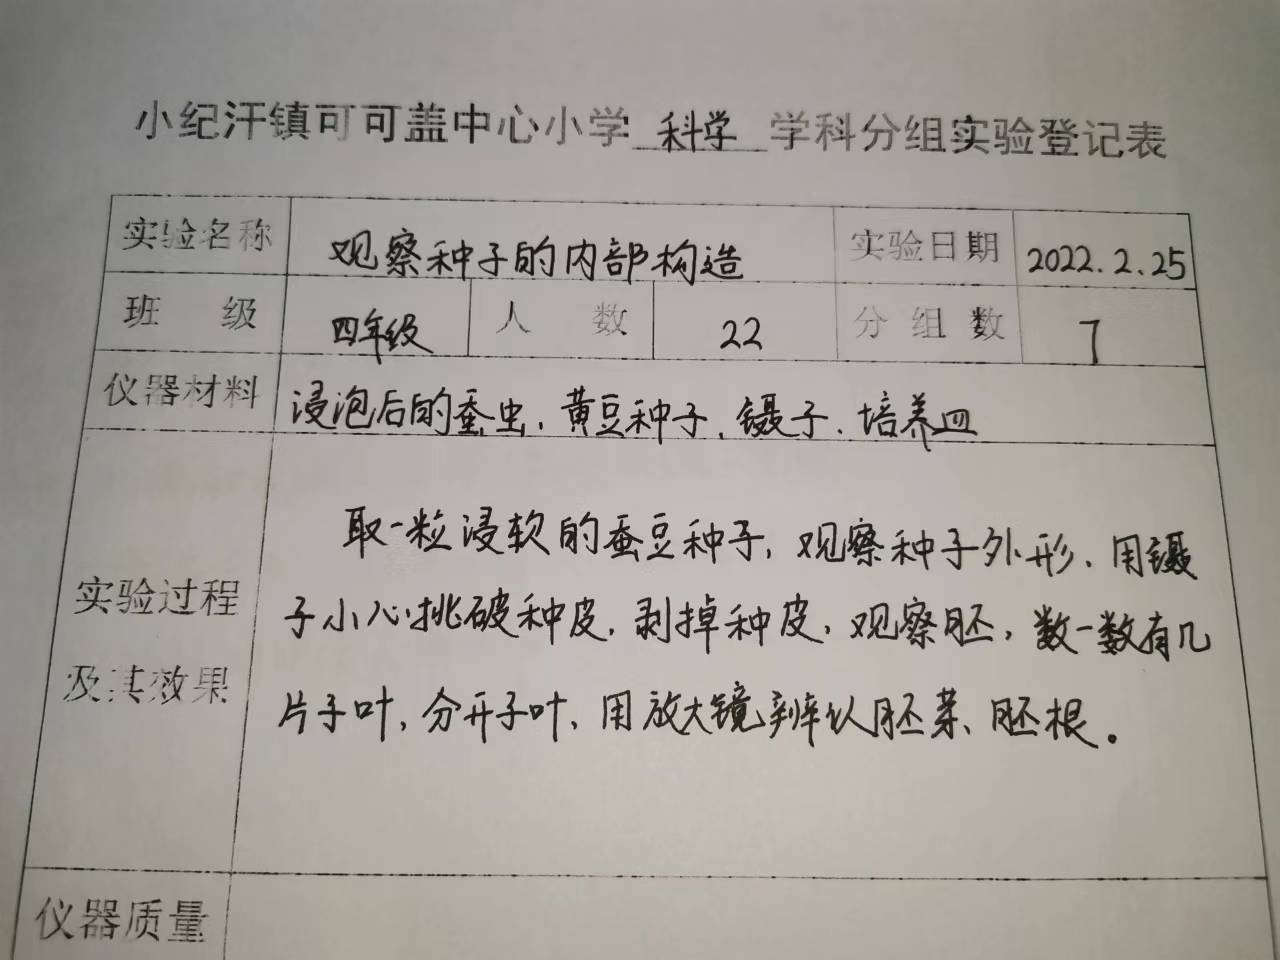 小纪汗镇可可盖中心小学 科学 学科分组实验登记表
实验名称 观察种子的内部构造 实验日期 2022.2.25
班级 四年级 人数 22 分组数 7
仪器材料 浸泡后的蚕虫、黄豆种子、镊子、培养皿
取一粒浸软的蚕豆种子,观察种子外形、用镊
实验过程 子小心挑破种皮,剥掉种皮,观察胚,数一数有几
及其效果 片子叶,分开子叶、用放大镜辨认胚芽、胚根。
仪器质量